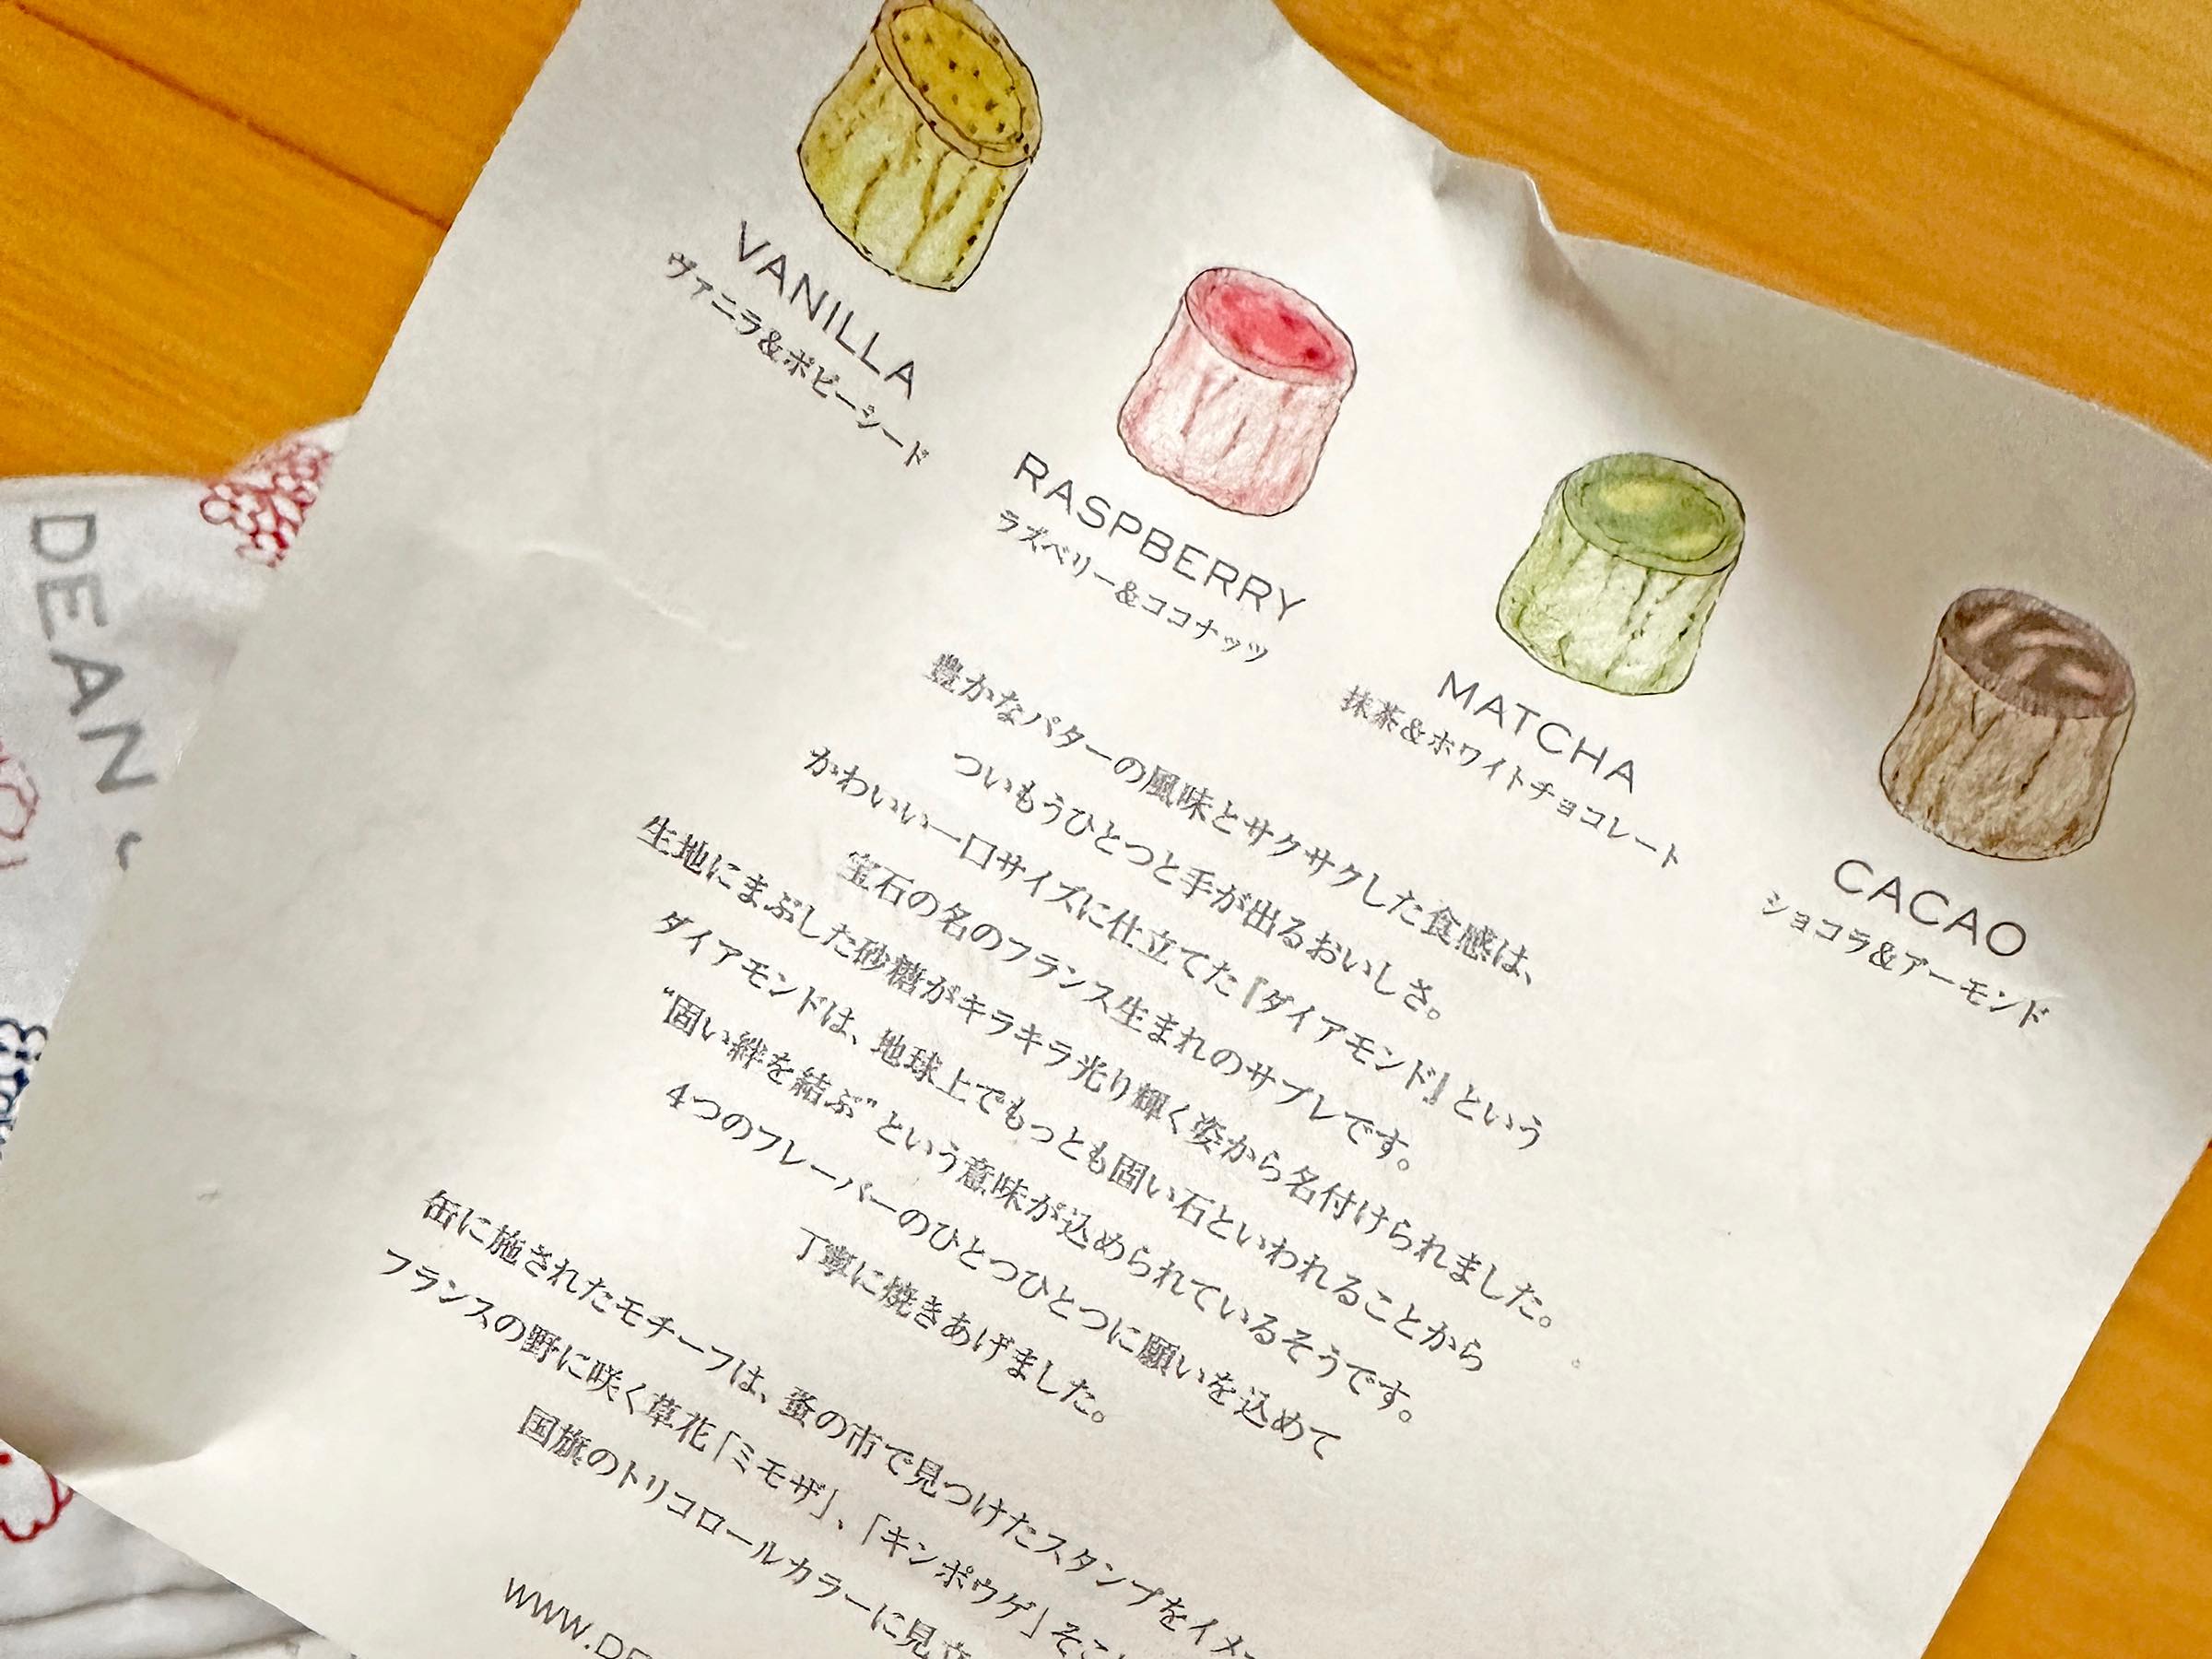 VANILLA
ヴァニラ&ポピーシード
RASPBERRY
ラズベリー&ココナッツ
MATCHA
抹茶&ホワイトチョコレート
CACAO
ショコラ&アーモンド
豊かなバターの風味とサクサクした食感は、
ついもうひとつと手が出るおいしさ。
かわいい一口サイズに仕立てた『ダイアモンド』という
宝石の名のフランス生まれのサブレです。
生地にまぶした砂糖がキラキラ光り輝く姿から名付けられました。
ダイアモンドは、地球上でもっとも固い石といわれることから
“固い絆を結ぶ”という意味が込められているそうです。
4つのフレーバーのひとつひとつに願いを込めて
丁寧に焼きあげました。
缶に施されたモチーフは、蚤の市で見つけたスタンプをイメー
フランスの野に咲く草花「ミモザ」、「キンポウゲ」そこに
国旗のトリコロールカラーに見立
WWW.DE
DEAN &